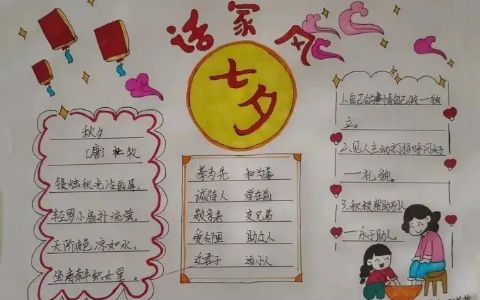 话家风
七夕
秋夕
[唐] 杜牧
银烛秋光冷画屏,
轻罗小扇扑流萤。
天阶夜色凉如水,
坐看牵织女星。
孝为先 和为善
诚待人 学在前
敬孝者 友兄弟
爱邻里 助众人
近君子 远小人
1.自己的事情自己做—独
立。
2.见人主动打招呼问好
—礼貌。
3.积极帮助他人
—乐于助人。